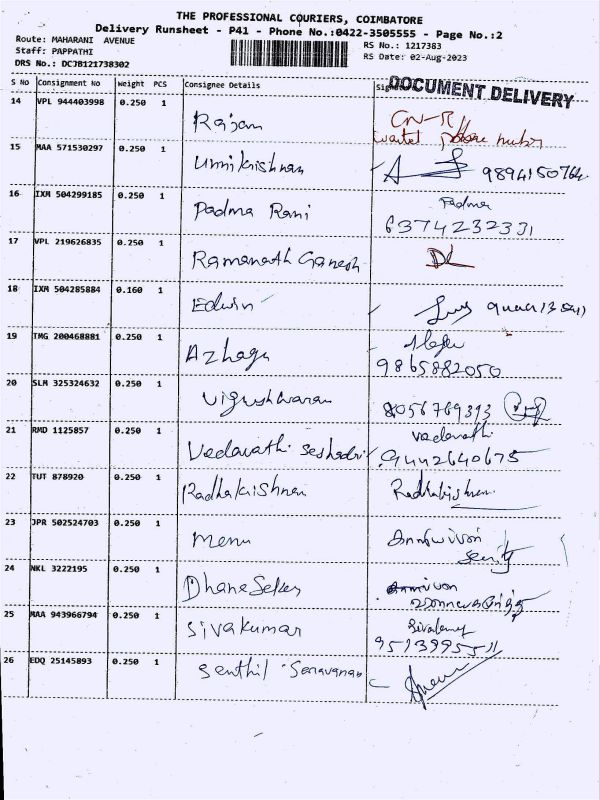 THE PROFESSIONAL COURIERS, COIMBATORE
Delivery Runsheet - P41 - Phone No.:0422-3505555 - Page No.:2
Route: MAHARANI AVENUE
Staff: PAPPATHI
DRS No.: DCJB121738302
RS No.: 1217383
RS Date: 02-Aug-2023
S No Consignment No Weight PCS Consignee Details
DOCUMENT DELIVERY
14 VPL 944403998 0.250 1 Rajan
15 MAA 571530297 0.250 1 Unnikrishnan 9894150764
16 IXM 504299185 0.250 1 Padma Rani Padma
6374232331
17 VPL 219626835 0.250 1 Ramanath Ganesh DL
18 IXM 504285884 0.160 1 Edwin
19 TMG 200468881 0.250 1 Azhagu
9865882050
20 SLM 325324632 0.250 1 Vigneshwaran 8056769393
21 RMD 1125857 0.250 1 Vedavathi Seshadri Vedavathi
9442640675
22 TUT 878920 0.250 1 Radhakrishnan Radhakrishnan
23 JPR 502524703 0.250 1 Menu
24 NKL 3222195 0.250 1 DhaneSekar
25 MAA 943966794 0.250 1 Sivakumar
9513995511
26 EDQ 25145893 0.250 1 Senthil Saravanan